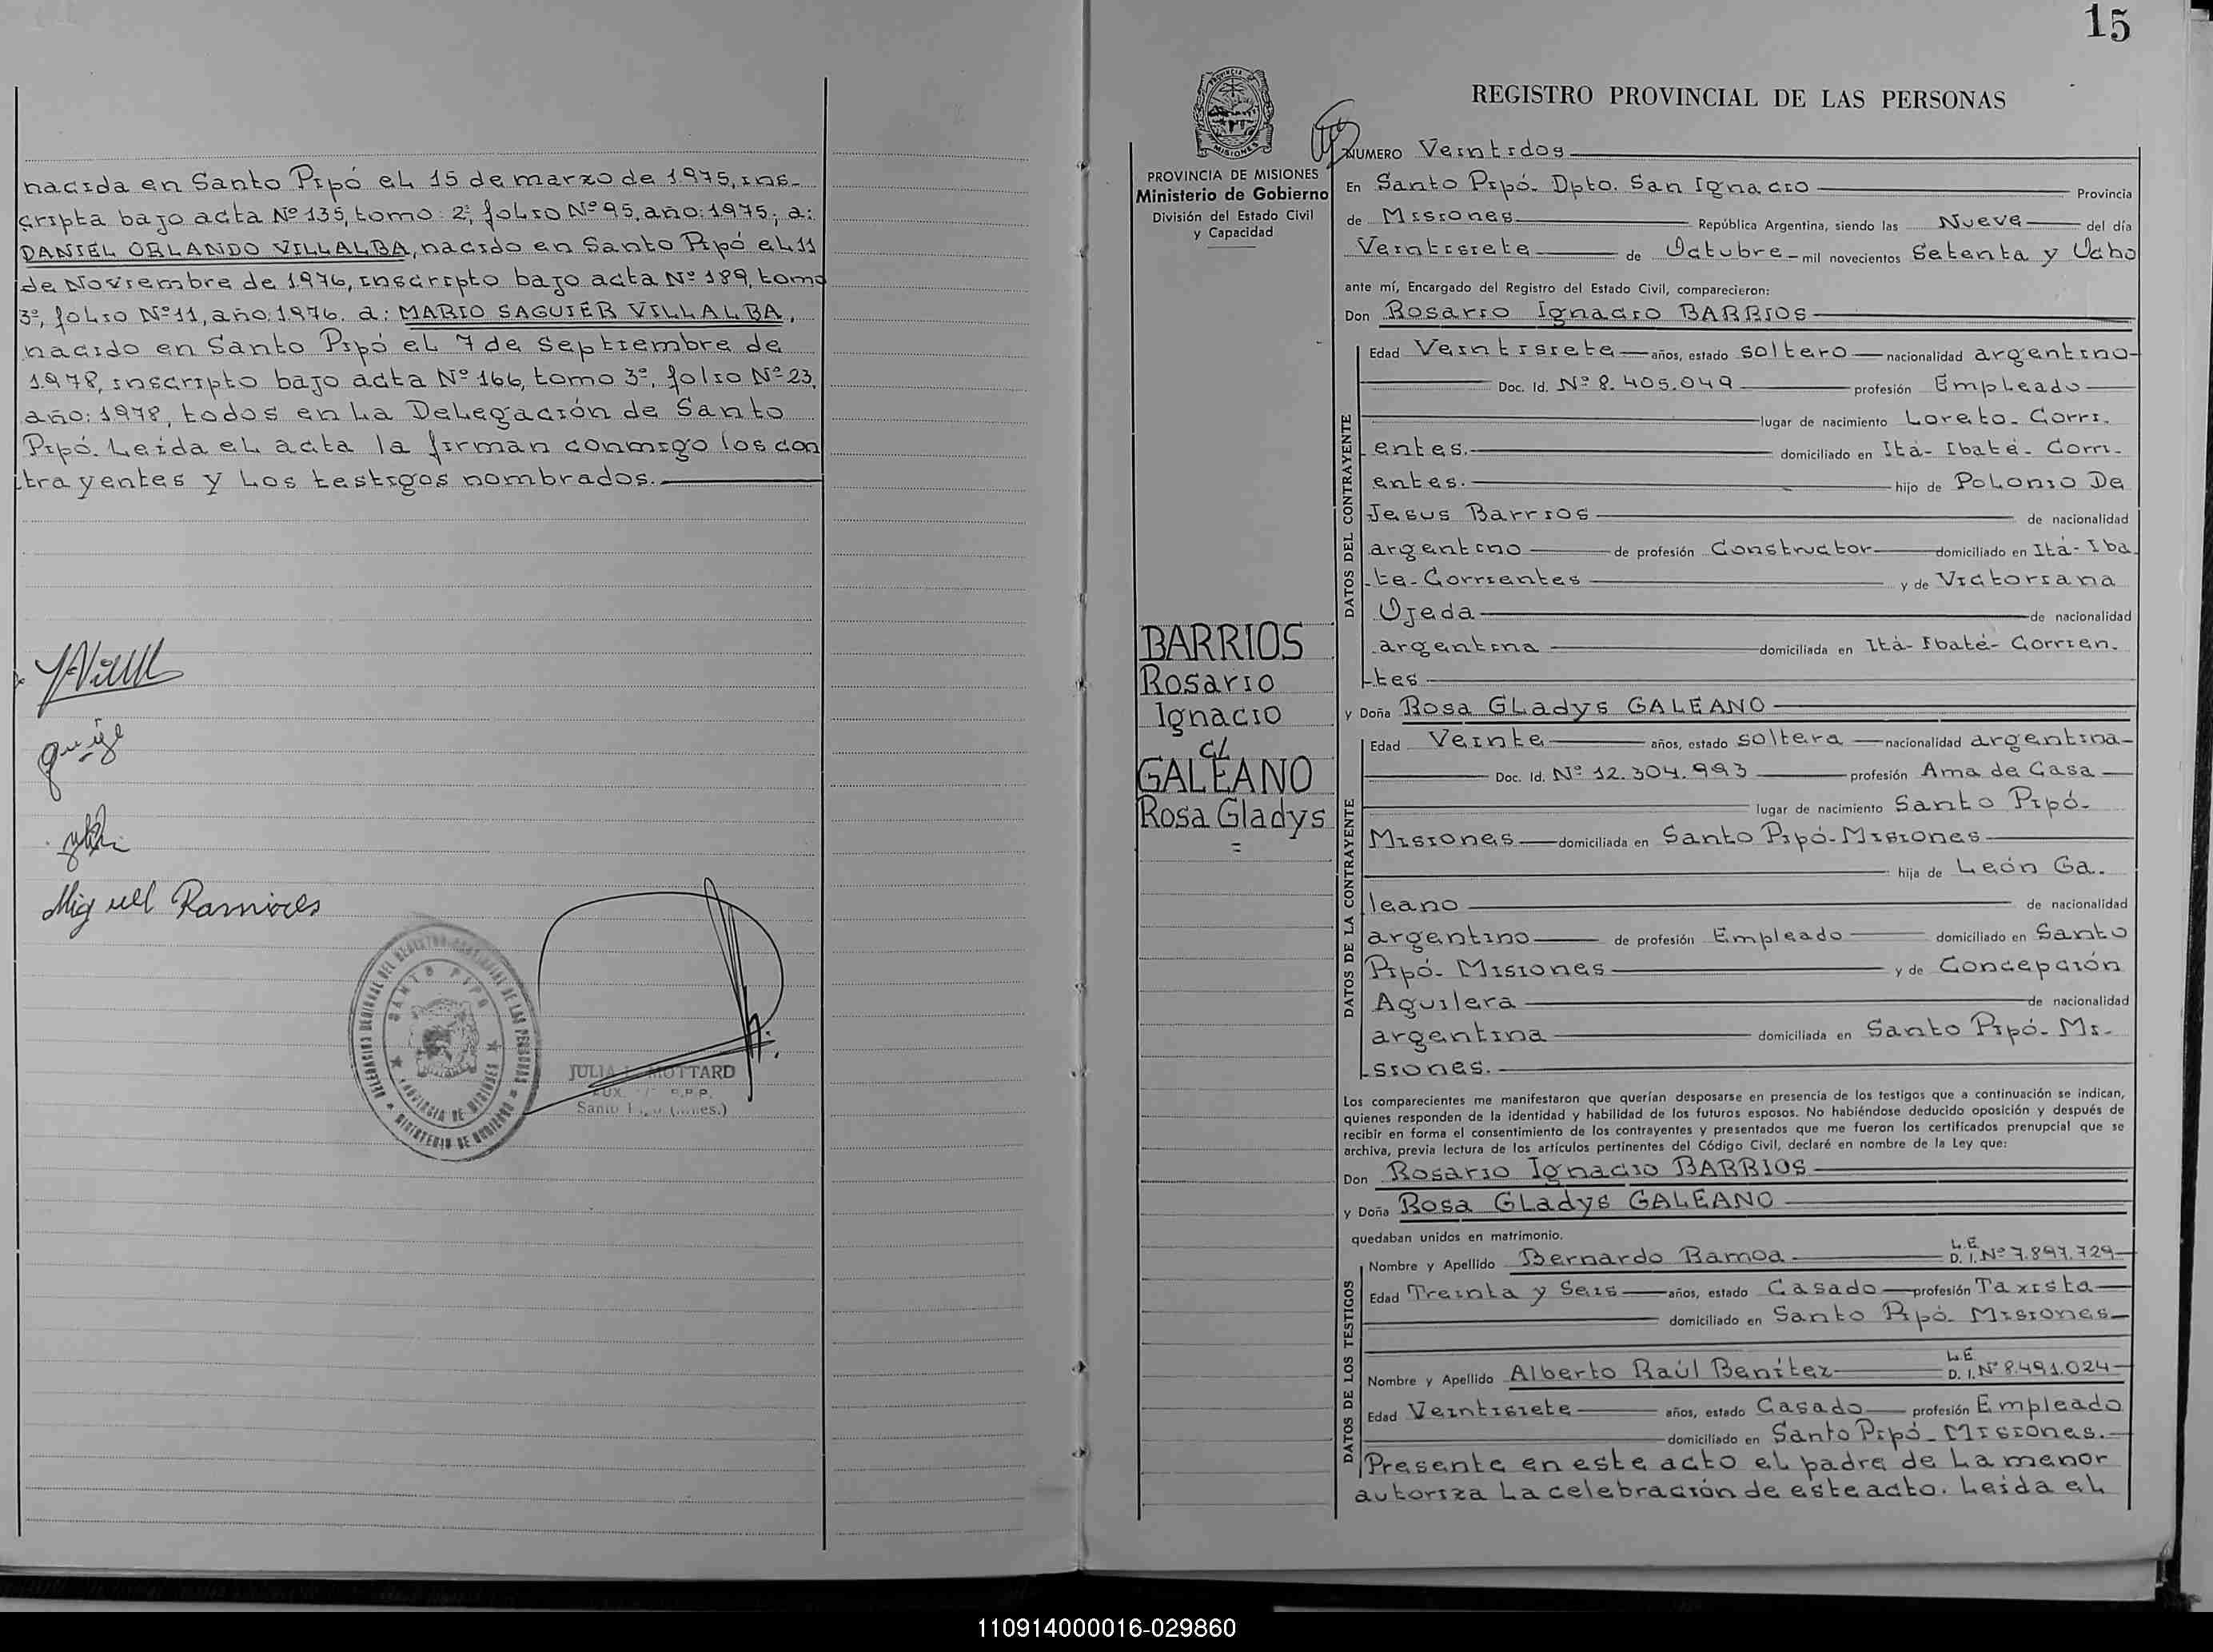 nacida en Santo Pipó el 15 de marzo de 1975, ins-
cripta bajo acta Nº 135, tomo: 2º, folio Nº 95, año: 1975; a:
DANIEL ORLANDO VILLALBA, nacido en Santo Pipó el 11
de Noviembre de 1976, inscripto bajo acta Nº 189, tomo
3º, folio Nº 11, año: 1976. a: MARIO SAGUIER VILLALBA,
nacido en Santo Pipó el 7 de Septiembre de
1978, inscripto bajo acta Nº 166, tomo 3º, folio Nº 23,
año: 1978, todos en la Delegación de Santo
Pipó. Leída el acta la firman conmigo los con
trayentes y los testigos nombrados.
Miguel Ramires
DELEGACION REGIONAL DEL REGISTRO PROVINCIAL DE LAS PERSONAS
SANTO PIPO
PROVINCIA DE MISIONES
MINISTERIO DE GOBIERNO
JULIA MOTTARD
R.P.P.
15
REGISTRO PROVINCIAL DE LAS PERSONAS
PROVINCIA DE MISIONES
Ministerio de Gobierno
División del Estado Civil
y Capacidad
BARRIOS
Rosario
Ignacio
c/
GALEANO
Rosa Gladys
=
NUMERO Veintidos
En Santo Pipó. Dpto. San Ignacio Provincia
de Misiones República Argentina, siendo las Nueve del día
Veintisiete de Octubre mil novecientos Setenta y Ocho
ante mí, Encargado del Registro del Estado Civil, comparecieron:
Don Rosario Ignacio BARRIOS
DATOS DEL CONTRAYENTE
Edad Veintisiete años, estado soltero nacionalidad argentino
Doc. Id. Nº 8.405.049 profesión Empleado
lugar de nacimiento Loreto. Corri.
entes. domiciliado en Itá-Ibaté. Corri.
entes. hijo de Polonio De
Jesus Barrios de nacionalidad
argentino de profesión Constructor domiciliado en Itá-Iba
te-Corrientes y de Victoriana
Ojeda de nacionalidad
argentina domiciliada en Itá-Ibaté-Corrien.
tes
y Doña Rosa Gladys GALEANO
DATOS DE LA CONTRAYENTE
Edad Veinte años, estado soltera nacionalidad argentina
Doc. Id. Nº 12.304.993 profesión Ama de Casa
lugar de nacimiento Santo Pipó.
Misiones domiciliada en Santo Pipó-Misiones
hija de León Ga.
leano de nacionalidad
argentino de profesión Empleado domiciliado en Santo
Pipó-Misiones y de Concepción
Aguilera de nacionalidad
argentina domiciliada en Santo Pipó-Mi-
siones.
Los comparecientes me manifestaron que querían desposarse en presencia de los testigos que a continuación se indican,
quienes responden de la identidad y habilidad de los futuros esposos. No habiéndose deducido oposición y después de
recibir en forma el consentimiento de los contrayentes y presentados que me fueron los certificados prenupcial que se
archiva, previa lectura de los artículos pertinentes del Código Civil, declaré en nombre de la Ley que:
Don Rosario Ignacio BARRIOS
y Doña Rosa Gladys GALEANO
quedaban unidos en matrimonio.
DATOS DE LOS TESTIGOS
Nombre y Apellido Bernardo Ramoa L.E. D. I. Nº 7.897.729
Edad Treinta y Seis años, estado Casado profesión Taxista
domiciliado en Santo Pipó. Misiones
Nombre y Apellido Alberto Raúl Benítez L.E. D. I. Nº 8.491.024
Edad Veintisiete años, estado Casado profesión Empleado
domiciliado en Santo Pipó-Misiones.
Presente en este acto el padre de la menor
autoriza la celebración de este acto. Leída el
110914000016-029860